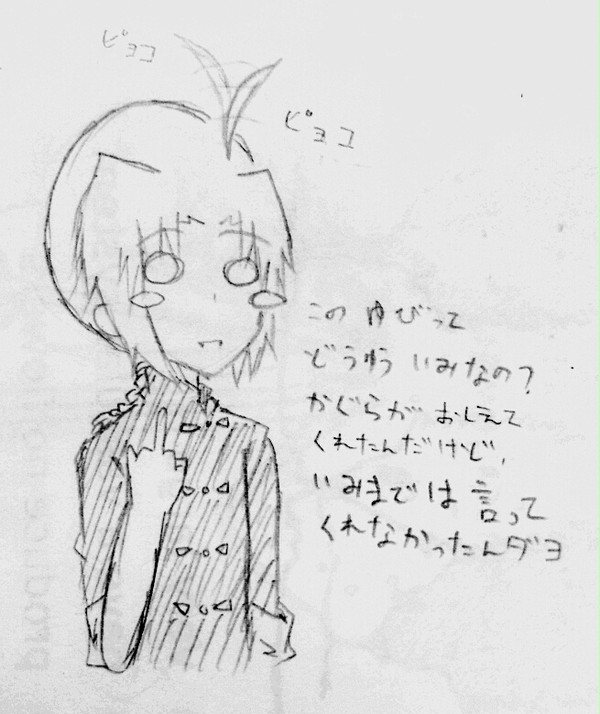 ピョコ
ピョコ
このゆびって
どうゆういみなの?
かぐらがおしえて
くれたんだけど、
いみまでは言って
くれなかったんダヨ